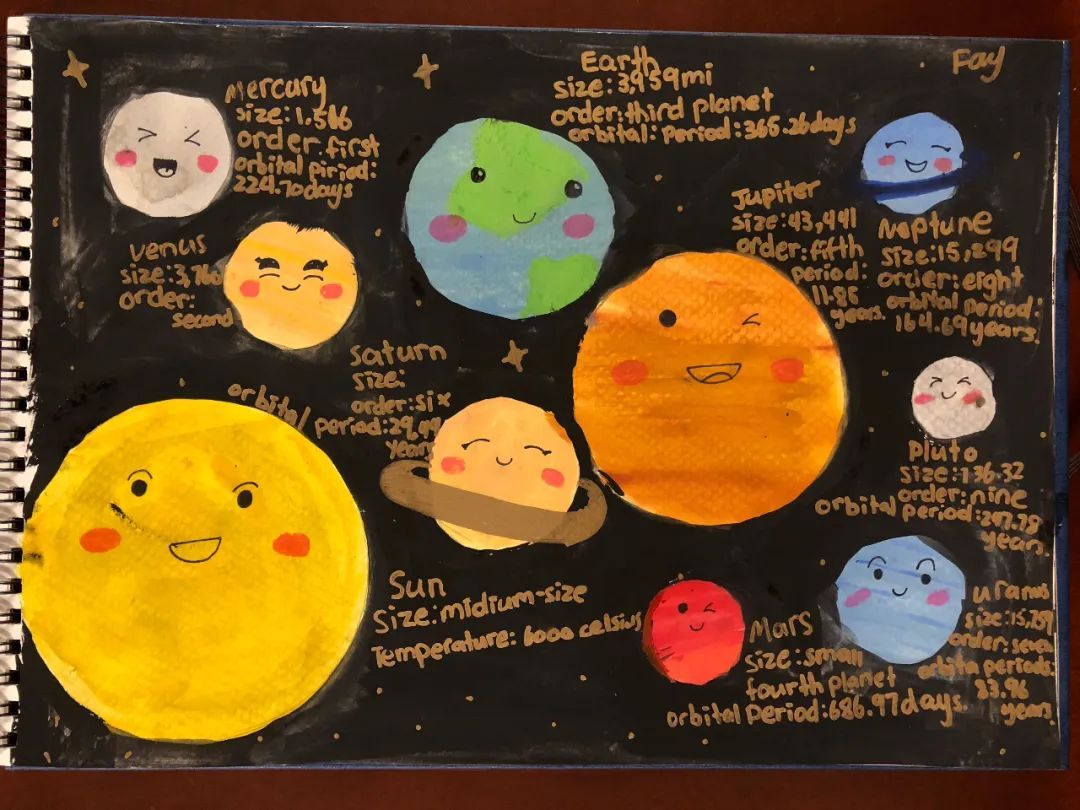 Fay
Mercury
size: 1,516
order: first
orbital piriod:
224.70days
Earth
size: 3,959mi
order: third planet
orbital: Period: 365.26days
Venus
size: 3,760
order:
second
Jupiter
size: 43,441
order: fifth
period:
11.86
years.
Neptune
size: 15,299
order: eight
orbital period:
164.69years.
Saturn
size:
order: six
orbital period: 29.44
Years
Pluto
size: 136.32
order: nine
orbital period: 247.78
years.
Sun
Size: midium-size
Temperature: 6000 celsius
Mars
size: small
fourth planet
orbital Period: 686.97days.
uranus
size: 15,759
order: seven
orbita period:
83.96
years.